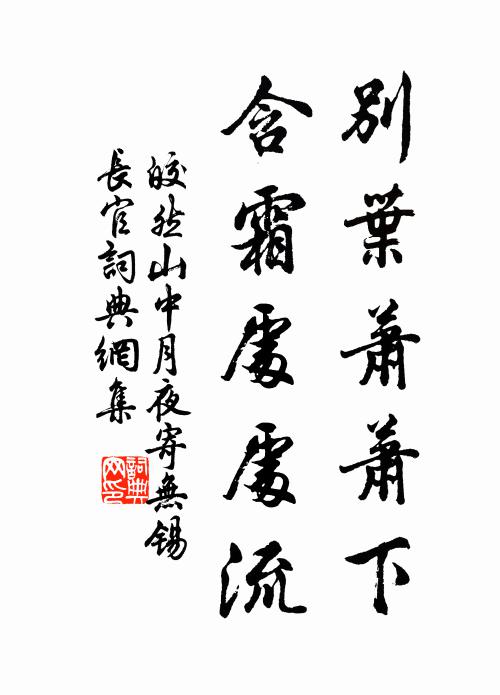 別葉蕭蕭下
含霜處處流
皎然山中月夜寄無錫
長官詞典網集
詞典網印